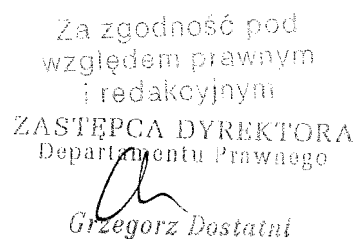 Za zgodność pod
względem prawnym
i redakcyjnym
ZASTĘPCA DYREKTORA
Departamentu Prawnego
Grzegorz Dostatni